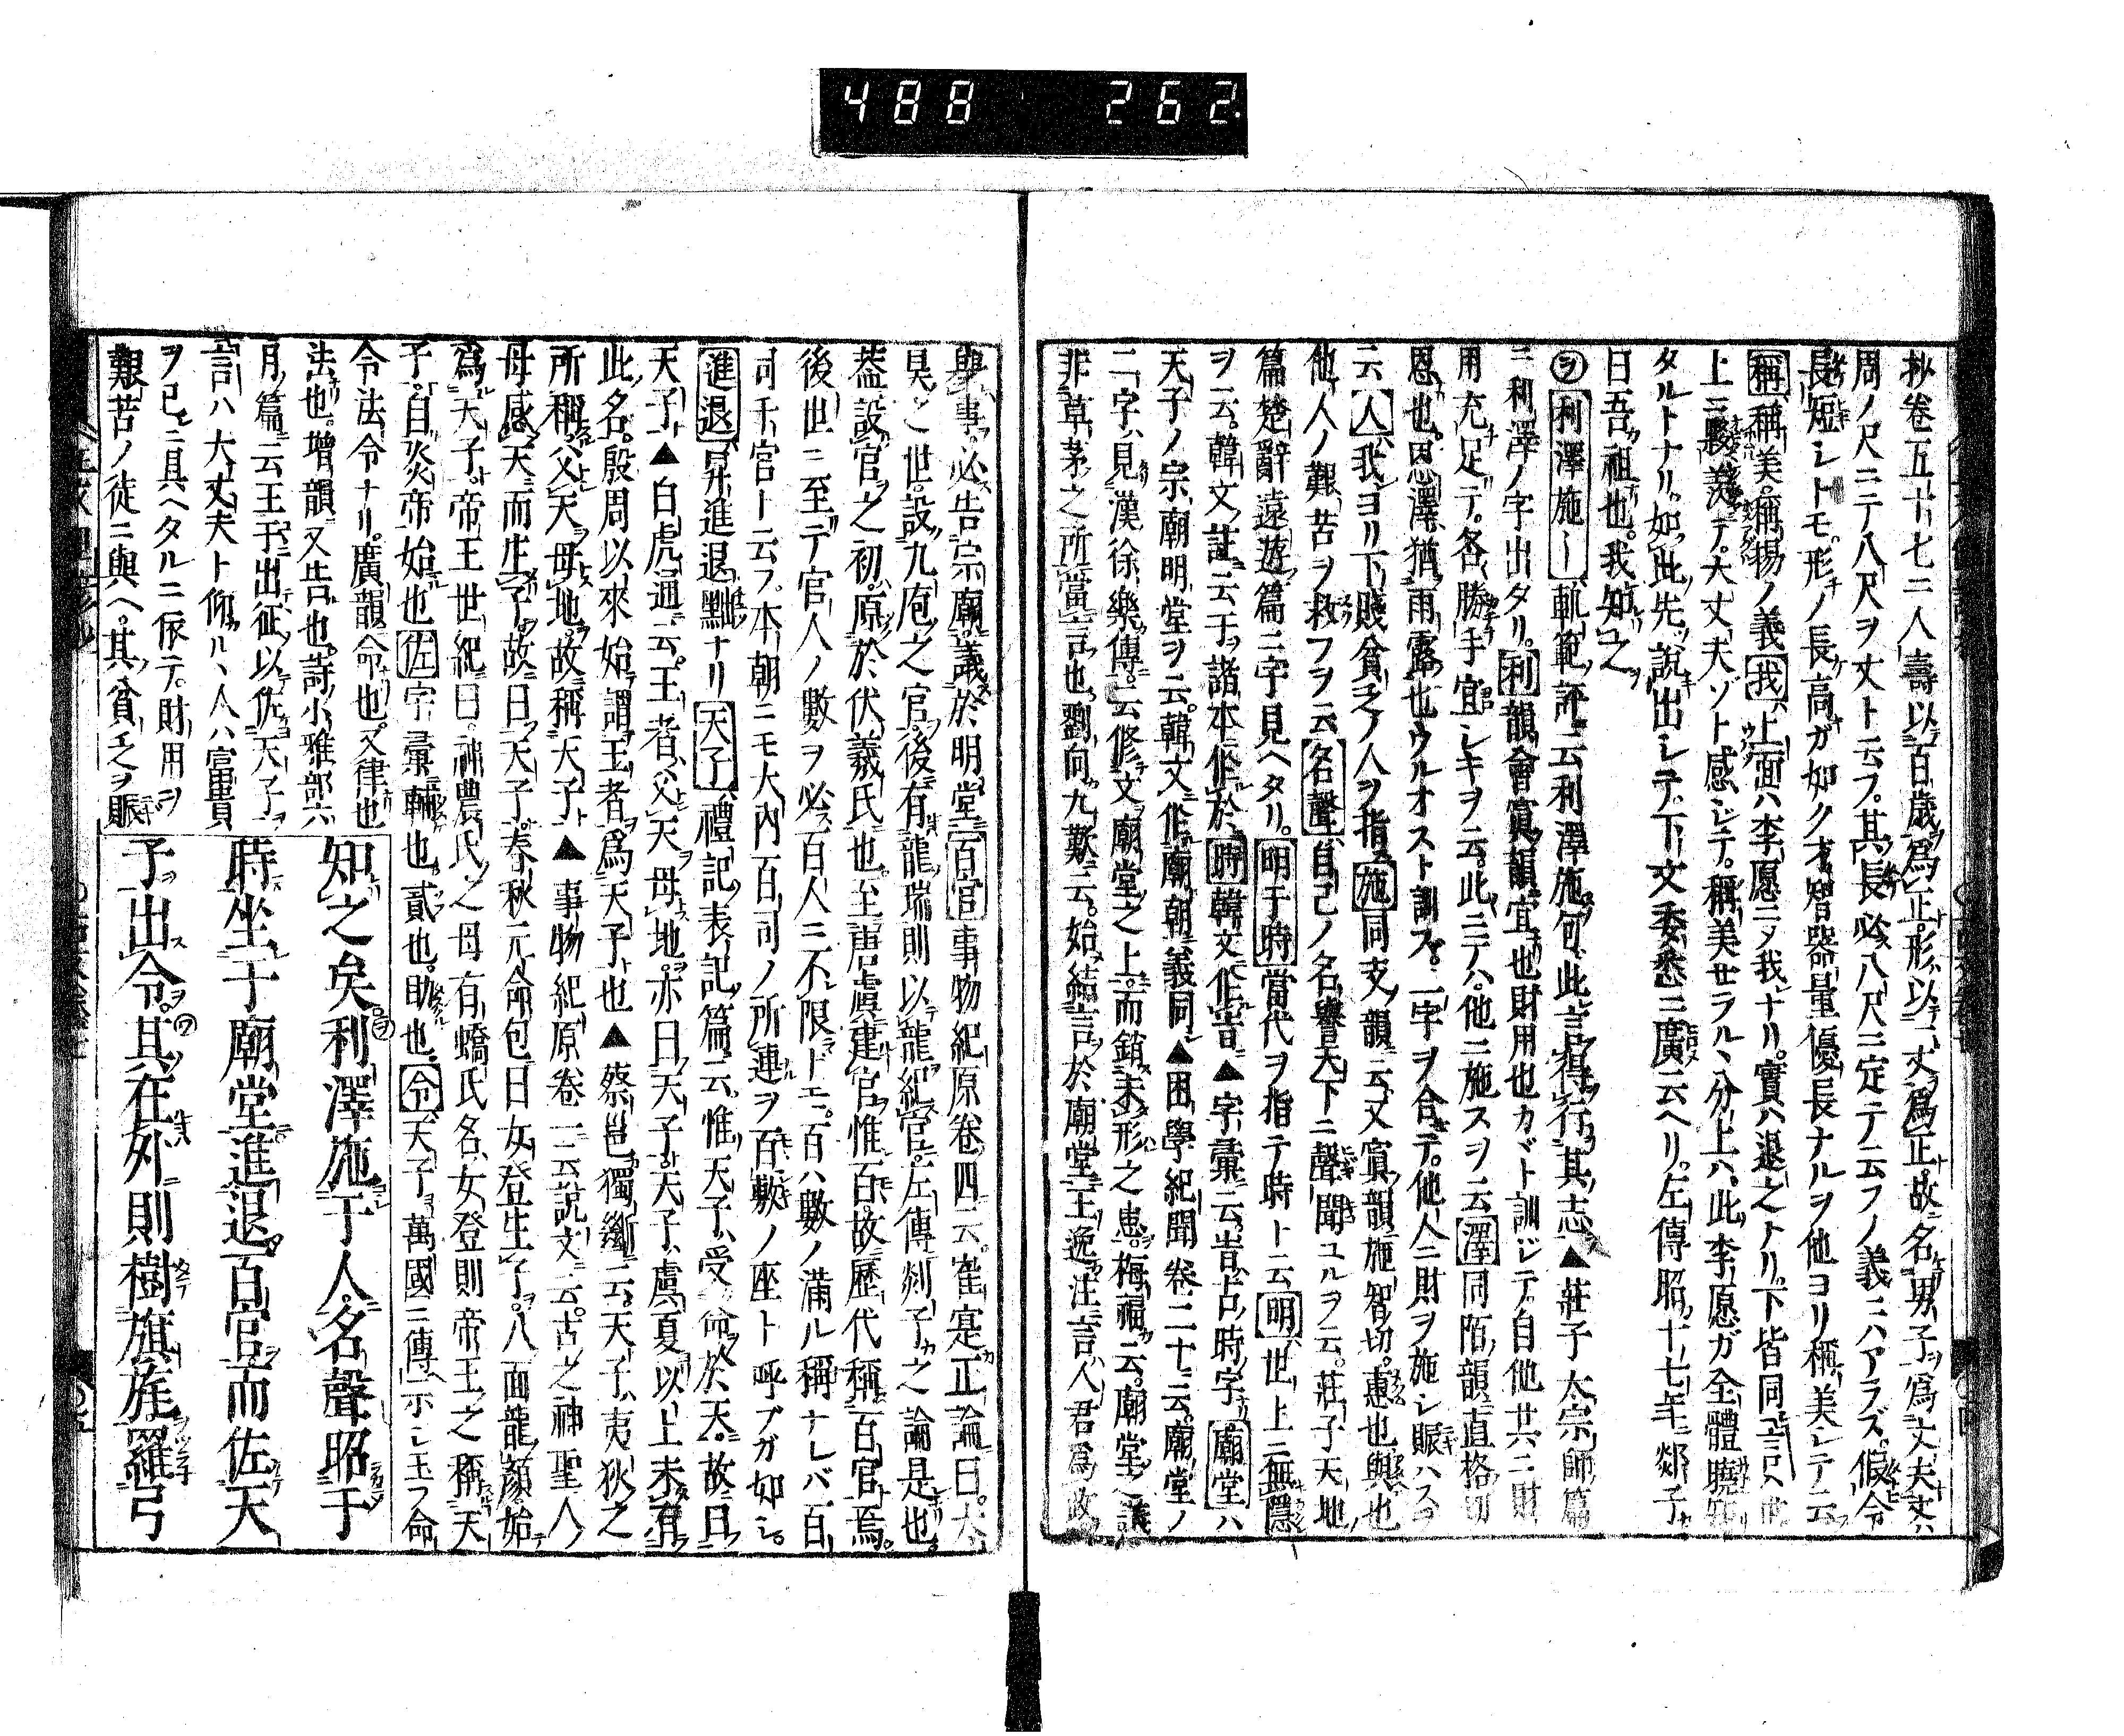 488 262
抄卷五十七ニ人壽以百歳爲正形以一丈爲正故名男子爲丈夫丈ハ
周ノ尺ニテ八尺ヲ丈ト云フ其長必八尺ニ定テ云フノ義ニハアラズ假令
長短シトモ形ノ長高ガ如ク才智器量優長ナルヲ他ヨリ稱美シテ云
稱稱美稱揚ノ義我上面ハ李愿ニヲ我ナリ實ハ退之トリ下皆同
上ニ美テ大丈夫ゾト感シテ稱美セラルヽ分上ハ此李愿ガ全體曉知
タルトナリ如此先說出シテ下文委悉ニ廣云ヘリ左傳昭十七年郯子
曰吾祖也我知之
ヲ利澤施―軌範評云利澤施句此言得行其志▲莊子大宗師篇
ニ利澤ノ字出タリ利韻會寘韻宜也財用也カヾト訓ジテ自他共ニ財
用充足テ各勝手宜シキヲ云此ニテハ他ニ施スヲ云澤同陌韻直格切
恩也恩澤猶雨露也ウルオスト訓ス二字ヲ合テ他人ニ財ヲ施シ賑ハス
云人我ヨリ下賤貧乏ノ人ヲ指施同支韻云又寘韻施智切惠也與也
他人ノ艱苦ヲ救フヲ云名聲自己ノ名譽天下ニ聲聞ユルヲ云莊子天地
篇楚辭遠遊篇ニ字見ヘタリ明于時當代ヲ指テ時ト云明世上ニ無隱
ヲ云韓文註云于諸本作於時韓文作旹▲字彙云旹古時字廟堂ハ
天子ノ宗廟明堂ヲ云韓文作廟朝義同▲困學紀聞卷二十云廟堂ノ
二字見漢徐樂傳云修文廟堂之上而銷未形之患梅福云廟堂之議
非草茅之所當言也劉向九歎云始結言於廟堂王逸注言人君爲政
擧事必告宗廟議於明堂百官事物紀原卷四云崔寔正論曰太
昊之世設九庖之官後有龍瑞則以龍紀官左傳郯子之論是也
葢設官之初原於伏羲氏也至唐虞建官惟百故歷代稱百官焉
後世ニ至テ官人ノ數ヲ必百人ニ不限トモ百ハ數ノ滿ル稱ナレバ百
司千官ト云フ本朝ニモ大內百司ノ所連ヲ百敷ノ座ト呼ブガ如シ
進退昇進退黜ナリ天子禮記表記篇云惟天子受命於天故曰
天子▲白虎通云王者父天母地亦曰天子天子虞夏以上未有
此名殷周以來始謂王者爲天子也▲蔡邕獨斷云天子夷狄之
所稱父天母地故稱天子▲事物紀原卷一云說文云古之神聖人
母感天而生子故曰天子春秋元命包曰女登生子八面龍顏始
爲天子帝王世紀曰神農氏之母有蟜氏名女登則帝王之稱天
子自炎帝始也佐字彙輔也貳也助也令天子萬國ニ傳ヘ示シ玉フ命
令法令ナリ廣韻命也又律也
法也增韻又告也詩小雅部六
月篇云王于出征以佐天子
言ハ大丈夫ト仰ルヽ人ハ富貴
ヲ已ニ具ヘタルニ依テ財用ヲ
艱苦ノ徒ニ與ヘ其貧乏ヲ賑
知之矣利澤施于人名聲昭于
時坐于廟堂進退百官而佐天
子出令其在外則樹旗旄羅弓